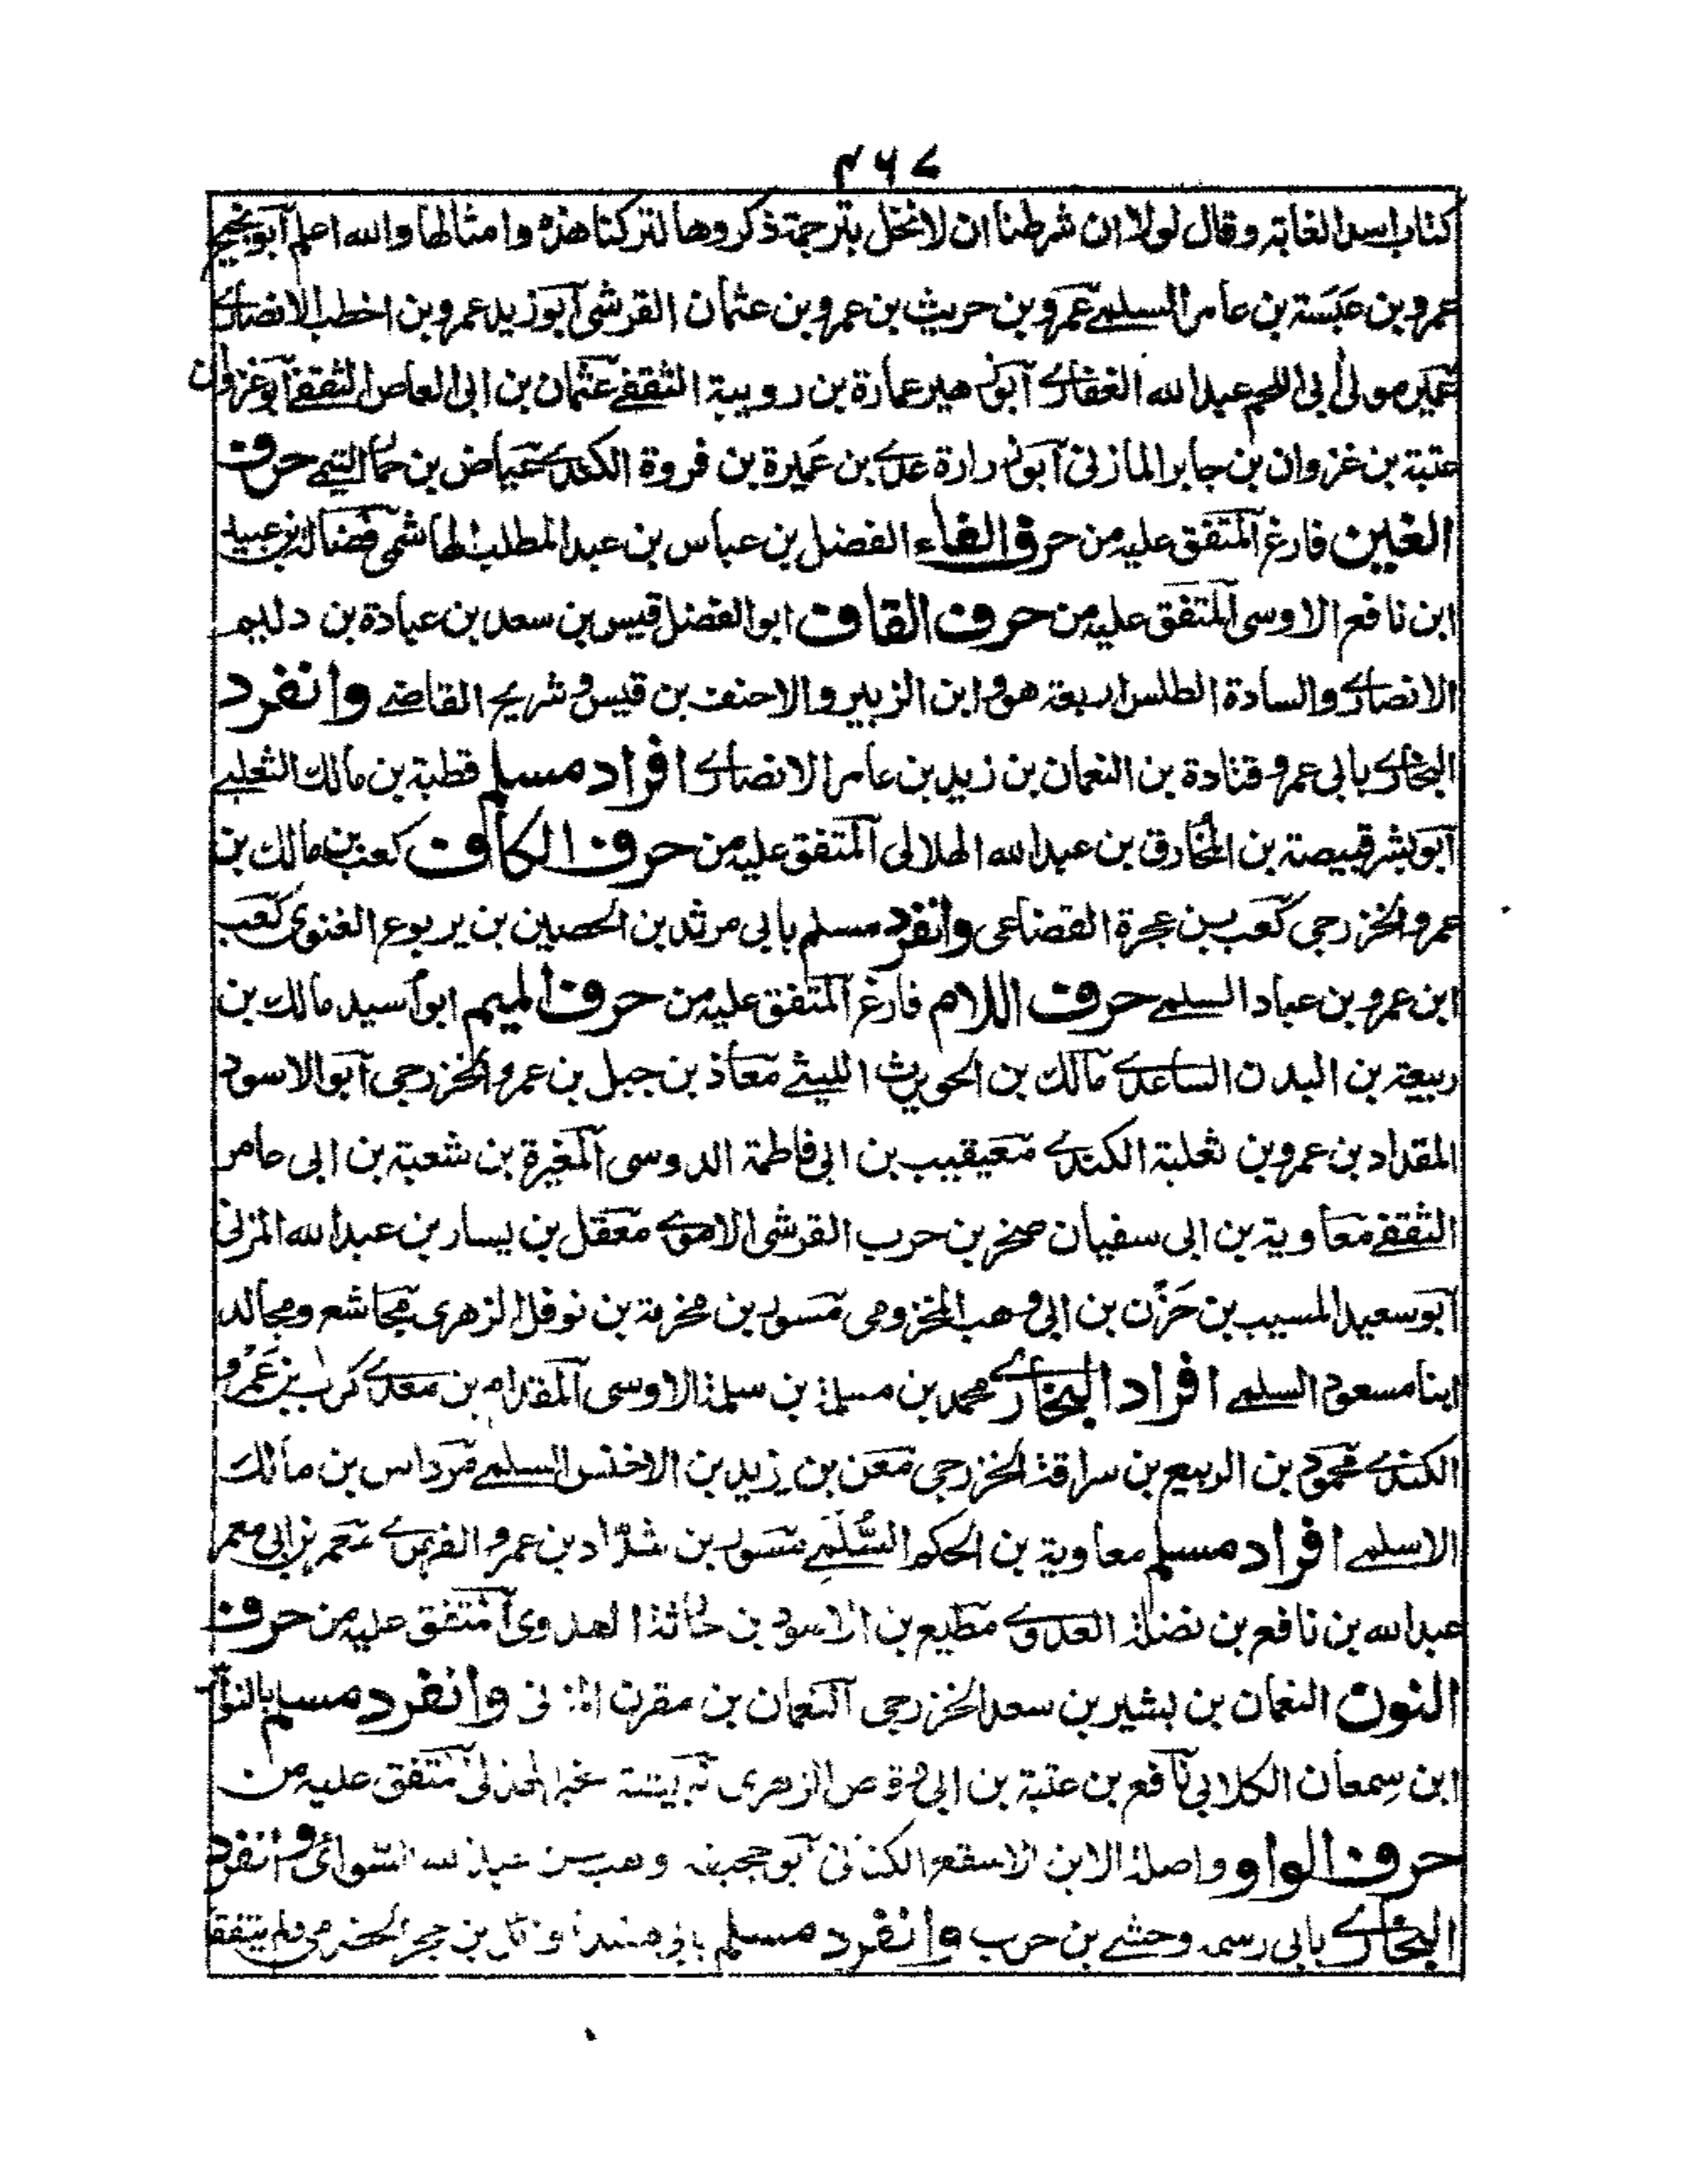 ۴۶۷
كتاب اسد الغابة وقال لولا ان شرطنا ان لا نخل بترجمة ذكروها لتركنا هذه وامثالها والله اعلم ابو نجيح
عمرو بن عَبَسَة بن عامر السلمي عمرو بن حريث بن عمرو بن عثمان القرشي ابو زيد عمرو بن اخطب الانصاري
عمير مولى ابى اللحم عبد الله الغفاري ابو زهير عمارة بن رويبة الثقفي عثمان بن ابى العاص الثقفي ابو غزوان
عتبة بن غزوان بن جابر المازنى ابو زرارة عدي بن عَمِيرة بن فروة الكندي عياض بن حمار التيمي حرف
الغين فارغ المتفق عليه من حرف الفاء الفضل بن عباس بن عبد المطلب الهاشمى فضالة بن عبيد
ابن نافع الاوسى المتفق عليه من حرف القاف ابو الفضل قيس بن سعد بن عبادة بن دليم
الانصاري والسادة الطلس اربعة هو وابن الزبير والاحنف بن قيس وشريح القاضي وانفرد
البخاري بابى عمرو قتادة بن النعمان بن زيد بن عامر الانصاري افراد مسلم قطبة بن مالك الثعلبي
ابو بشر قبيصة بن المخارق بن عبد الله الهلالى المتفق عليه من حرف الكاف كعب بن مالك بن
عمرو الخزرجى كعب بن عجرة القضاعى وانفرد مسلم بابى مرثد بن الحصين بن يربوع الغنوى كعب
ابن عمرو بن عباد السلمي حرف اللام فارغ المتفق عليه من حرف الميم ابو اُسيد مالك بن
ربيعة بن البدن الساعدي مالك بن الحويرث الليثي معاذ بن جبل بن عمرو الخزرجى ابو الاسود
المقداد بن عمرو بن ثعلبة الكندي معيقيب بن ابى فاطمة الدوسى المغيرة بن شعبة بن ابى عامر
الثقفي معاوية بن ابى سفيان صخر بن حرب القرشى الاموي معقل بن يسار بن عبد الله المزنى
ابو سعيد المسيب بن حَزْن بن ابى وهب المخزومى مسور بن مخرمة بن نوفل الزهرى مجاشع ومجالد
ابنا مسعود السلمي افراد البخاري محمد بن مسلمة بن سلمة الاوسى المقدام بن معدي كرب بن عَمْرو
الكندي محمود بن الربيع بن سراقة الخزرجى معن بن يزيد بن الاخنس السلمي مرداس بن مالك
الاسلمي افراد مسلم معاوية بن الحكم السُّلَمِي مسور بن شدّاد بن عمرو الفهري معمر بن ابى معمر
عبد الله بن نافع بن نضلة العدوي مطيع بن الاسود بن حارثة العدوى المتفق عليه من حرف
النون النعمان بن بشير بن سعد الخزرجى النعمان بن مقرن المزنى وانفرد مسلم بالنواس
ابن سِمعان الكلابى نافع بن عتبة بن ابى وقاص الزهرى نبيشة الهذلى متفق عليه من
حرف الواو واصلة الابن الاسقع الكنانى ابو جحيفة وهب بن عبد الله السوائى وانفرد
البخاري بابى رسمه وحشي بن حرب وانفرد مسلم بابى هنيدة وائل بن حجر الحضرمى ولم يتفقا